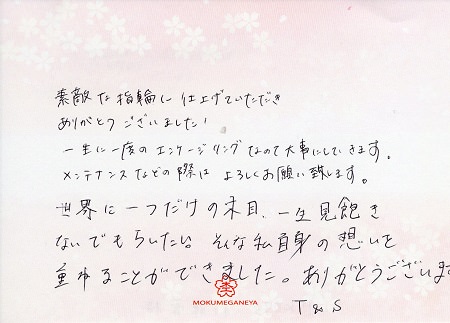 素敵な指輪に仕上げていただき
ありがとうございました!
一生に一度のエンゲージリングなので大事にしていきます。
メンテナンスなどの際は よろしくお願い致します。
世界に一つだけの木目、一生見飽き
ないでもらいたい。そんな私自身の想いを
重ねることができました。ありがとうございます
T & S
MOKUMEGANEYA